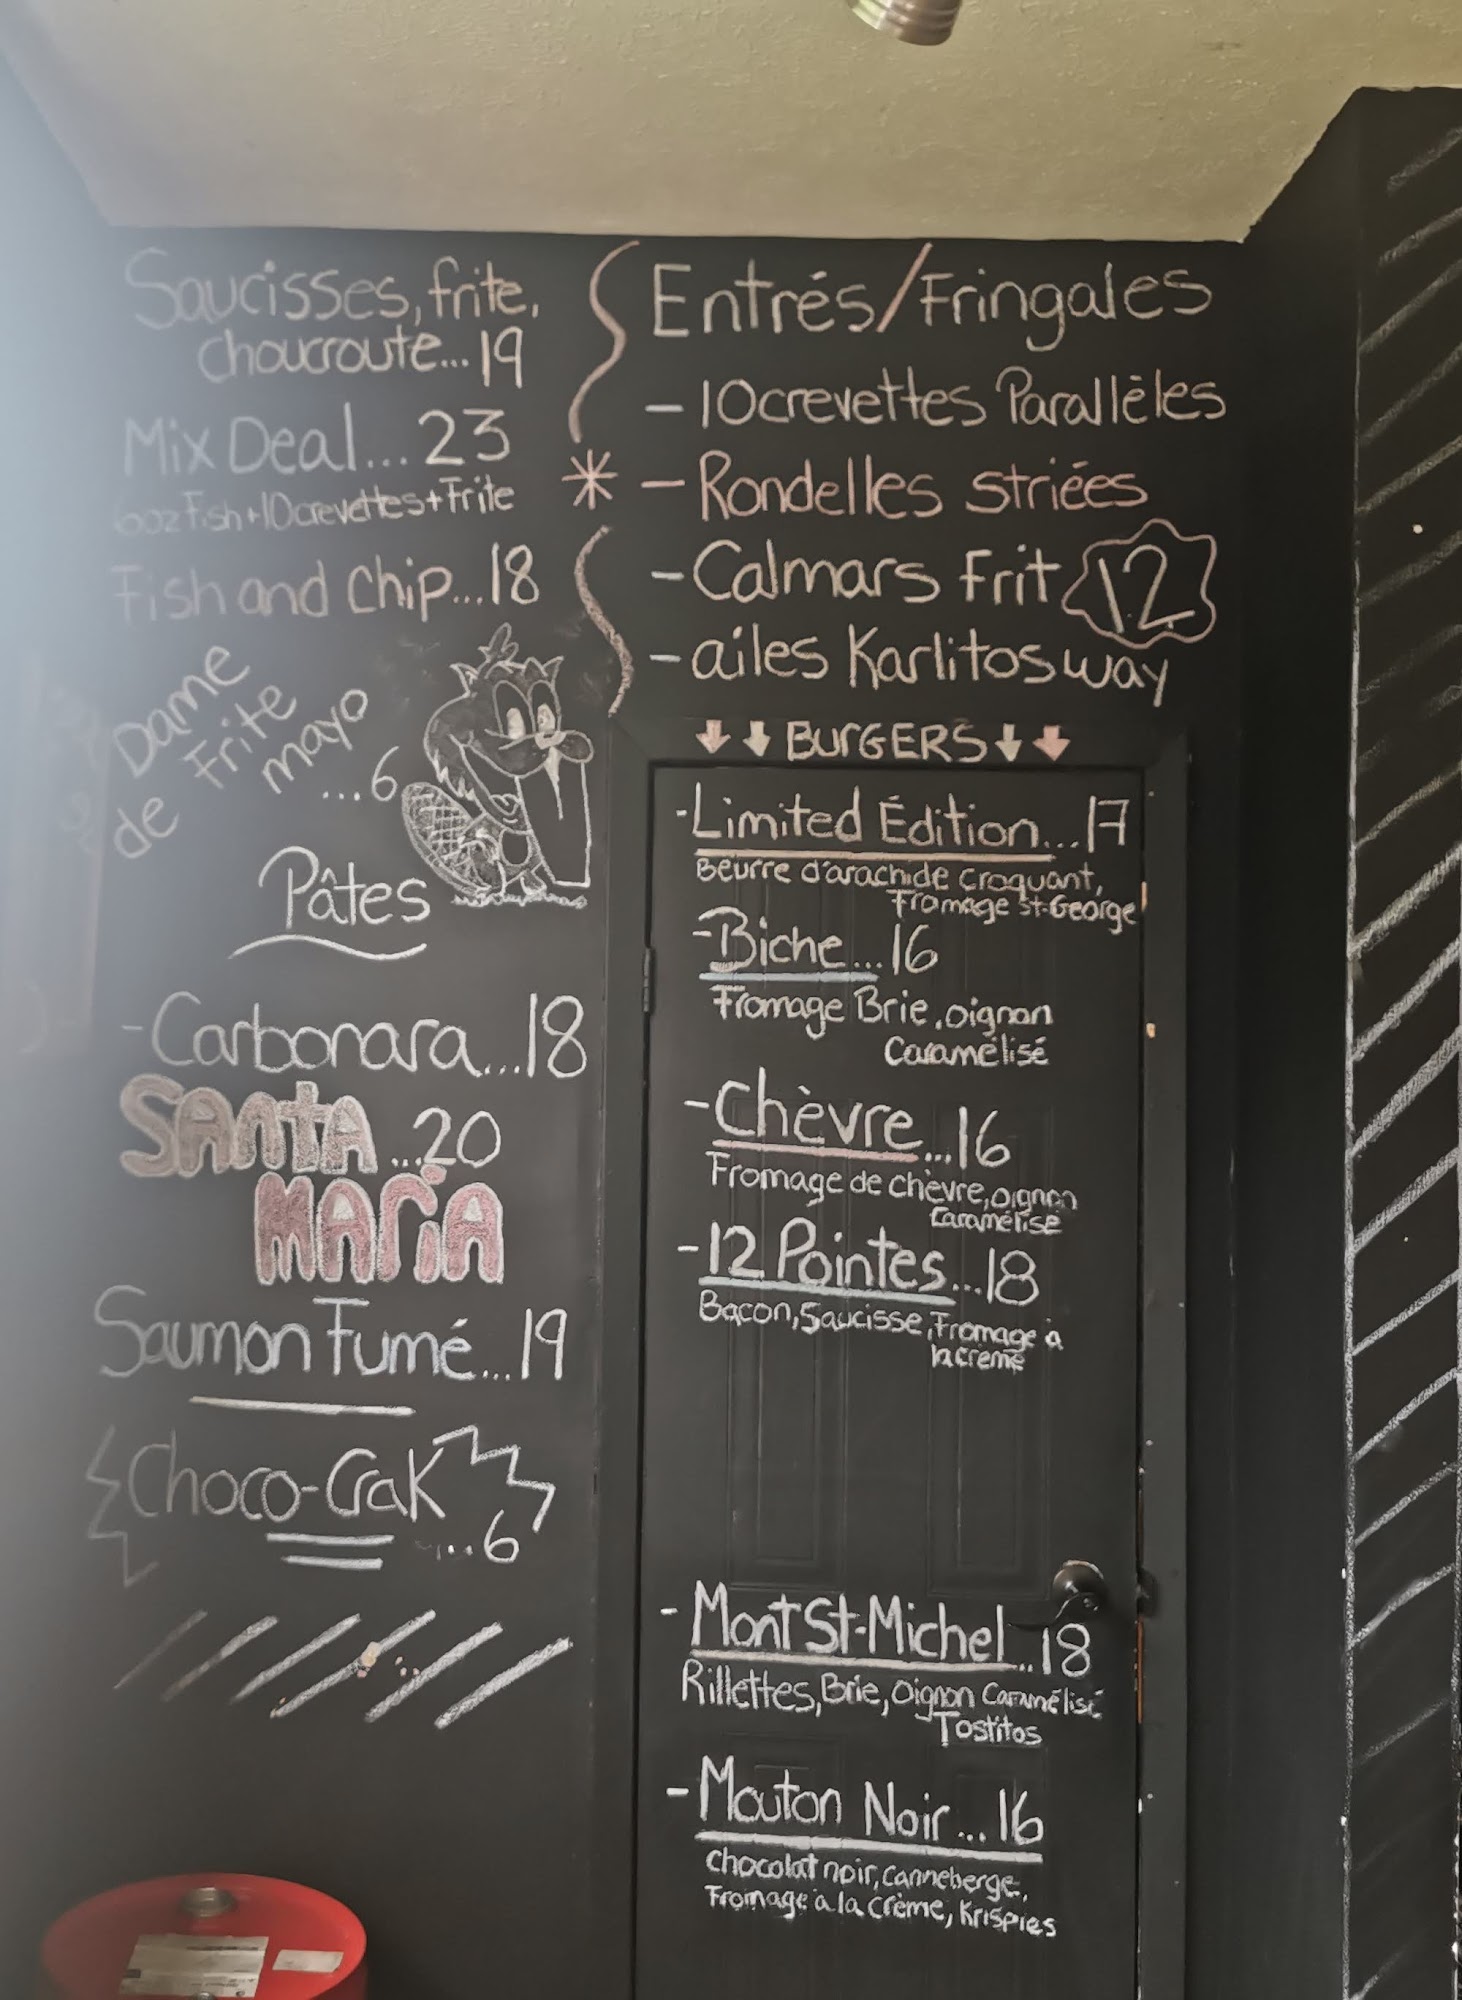 Saucisses, frite,
choucroute...19
Mix Deal...23
6oz Fish+10crevettes+Frite
Fish and Chip...18
Dame
de Frite
mayo
...6
Pâtes
-Carbonara...18
SANTA ...20
MARIA
Saumon Fumé...19
Choco-Crak
...6
Entrés/Fringales
- 10crevettes Parallèles
* - Rondelles striées
- Calmars Frit 12
- ailes Karlitosway
BURGERS
-Limited Édition...17
Beurre d'arachide croquant,
Fromage St-George
-Biche...16
Fromage Brie, oignon
Caramélisé
-Chèvre...16
Fromage de chèvre, oignon
Caramélisé
-12 Pointes...18
Bacon, Saucisse, Fromage à
la creme
-Mont St-Michel...18
Rillettes, Brie, oignon Caramélisé
Tostitos
-Mouton Noir...16
Chocolat noir, Canneberge,
Fromage à la Crème, Krispies